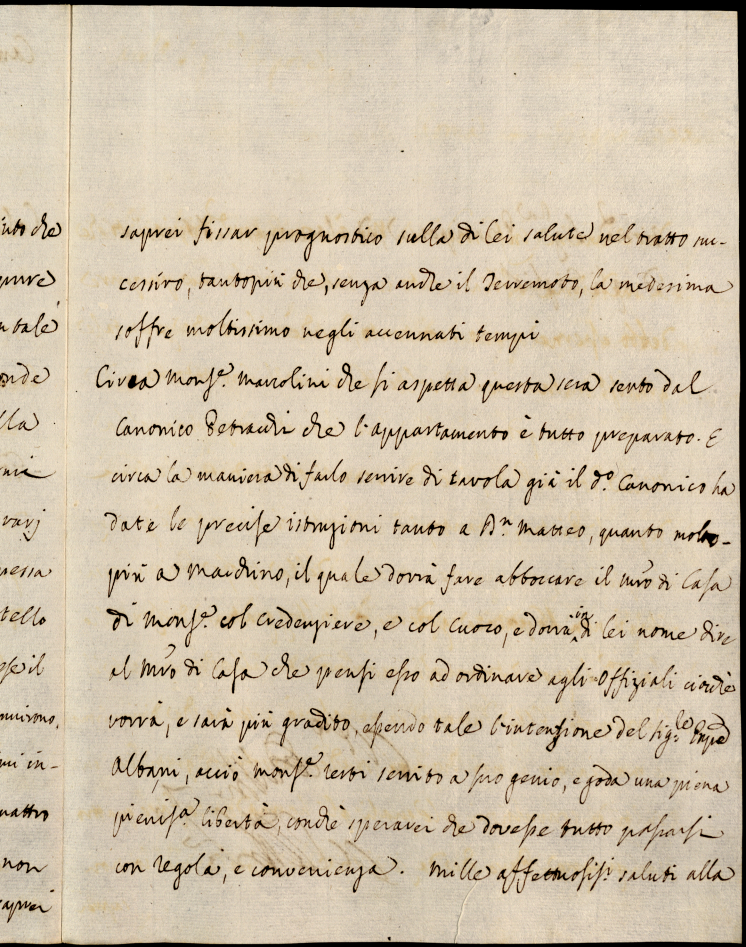 saprei fissar prognostico sulla di lei salute nel tratto suc-
cessivo, tantopiù che, senza anche il Terremoto, la medesima
soffre moltissimo negli accennati tempi
Circa Monsr. Marcolini che si aspetta questa sera sento dal
Canonico Petrachi che l'appartamento è tutto preparato. E
circa la maniera di farlo servire di tavola già il do. Canonico ha
date le precise istruzioni tanto a Bn. Matteo, quanto molto-
più a Marchino, il quale dovrà fare abboccare il Mro di Casa
di Monsr. col Credenziere, e col Cuoco, e dovrà in di lei nome dire
al Mro di Casa che pensi esso ad ordinare agli Offiziali ciocchè
vorrà, e sarà più gradito, essendo tale l'intenzione del Sigr.
Albani, acciò Monsr. resti servito a suo genio, e goda una piena
pienisa. libertà, condchè sperarei che dovesse tutto passarsi
con regola, e convenienza. Mille affettuosissi. saluti alla
uto che
pure
tale
onde
lla
varj
pessa
tello
il
mi in-
quattro
non
saprei